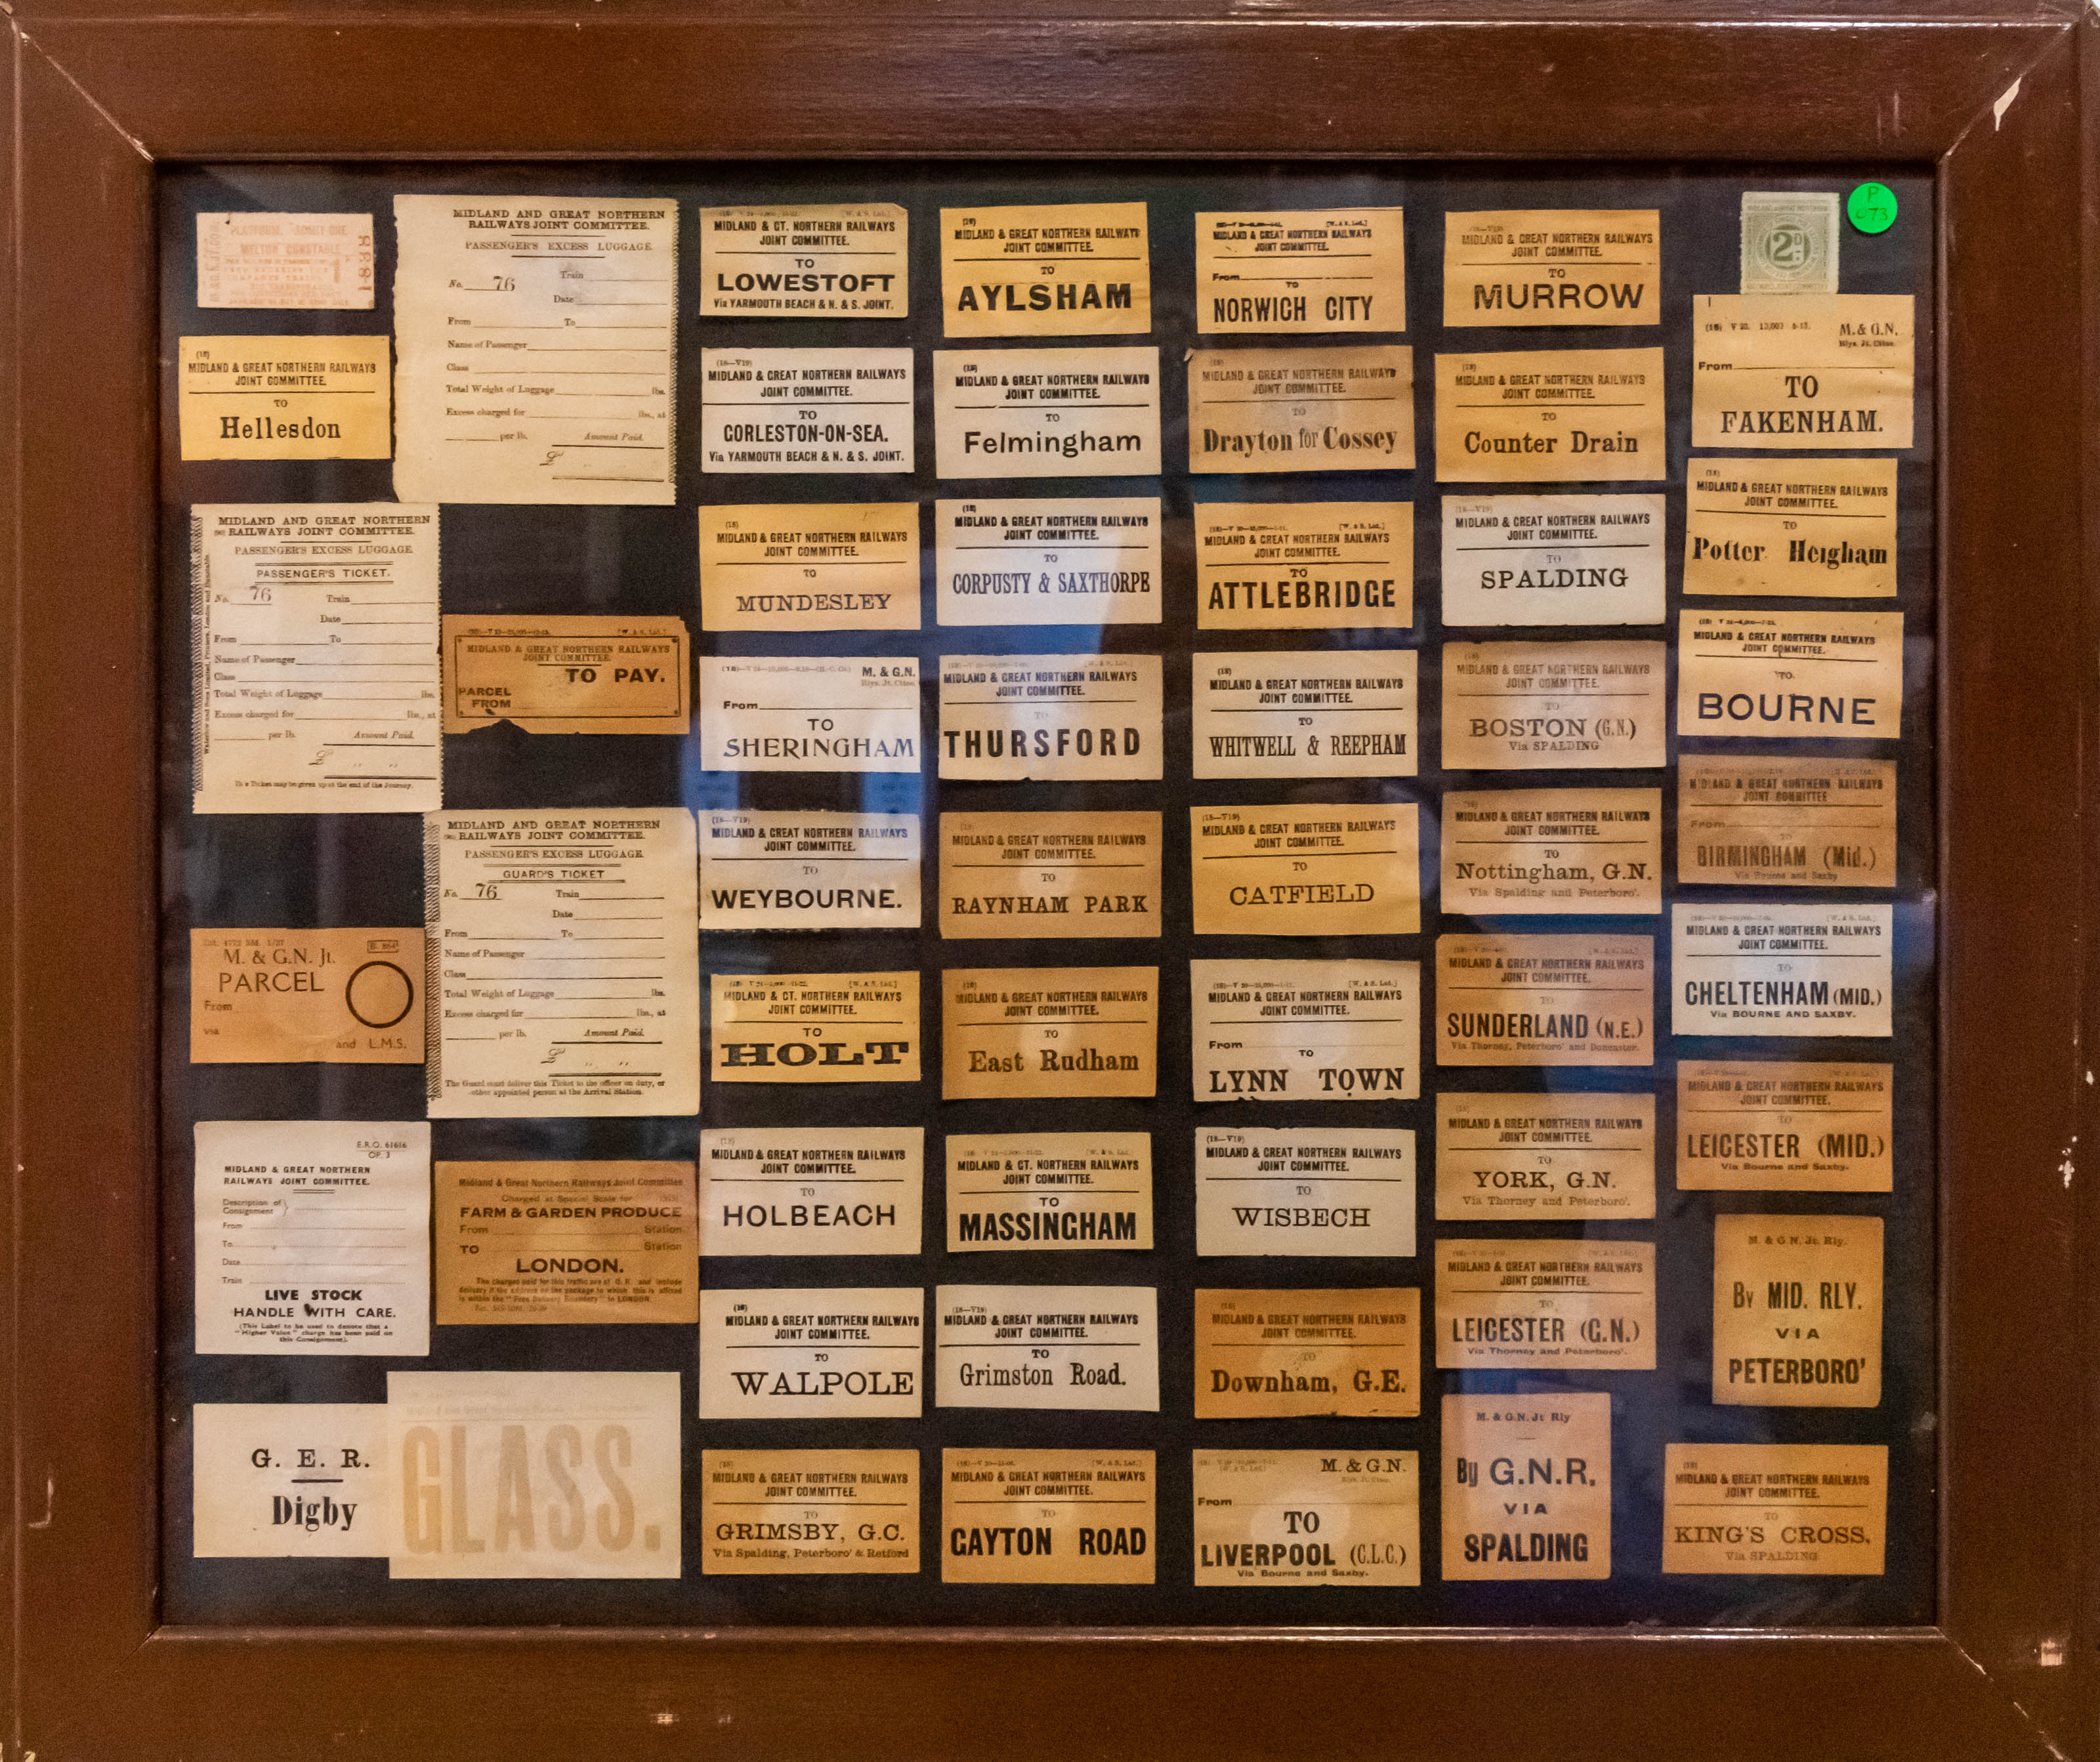 PLATFORM. ADMIT ONE.
MELTON CONSTABLE
1
8381
(18)
MIDLAND & GREAT NORTHERN RAILWAYS
JOINT COMMITTEE.
TO
Hellesdon
MIDLAND AND GREAT NORTHERN
RAILWAYS JOINT COMMITTEE.
PASSENGER'S EXCESS LUGGAGE.
No. 76 Train
Date
From To
Name of Passenger
Class
Total Weight of Luggage lbs.
Excess charged for lbs., at
per lb. Amount Paid.
£
MIDLAND AND GREAT NORTHERN
RAILWAYS JOINT COMMITTEE.
PASSENGER'S EXCESS LUGGAGE.
PASSENGER'S TICKET.
No. 76 Train
Date
From To
Name of Passenger
Class
Total Weight of Luggage lbs.
Excess charged for lbs., at
per lb. Amount Paid.
£ „ „
This Ticket may be given up at the end of the Journey.
MIDLAND & GREAT NORTHERN RAILWAYS
JOINT COMMITTEE.
TO PAY.
PARCEL
FROM
M. & G.N. Jt.
PARCEL
From
via
and L.M.S.
MIDLAND AND GREAT NORTHERN
RAILWAYS JOINT COMMITTEE.
PASSENGER'S EXCESS LUGGAGE.
GUARD'S TICKET
No. 76 Train
Date
From To
Name of Passenger
Class
Total Weight of Luggage lbs.
Excess charged for lbs., at
per lb. Amount Paid.
£ „ „
The Guard must deliver this Ticket to the officer on duty, or
other appointed person at the Arrival Station.
E.R.O. 61616
OP. 3
MIDLAND & GREAT NORTHERN
RAILWAYS JOINT COMMITTEE.
Description of
Consignment
From
To
Date
Train
LIVE STOCK
HANDLE WITH CARE.
(This Label to be used to denote that a
"Higher Value" charge has been paid on
this Consignment).
Midland & Great Northern Railways Joint Committee
Charged at Special Scale for
FARM & GARDEN PRODUCE
From Station
TO Station
LONDON.
G. E. R.
Digby
GLASS.
MIDLAND & GT. NORTHERN RAILWAYS
JOINT COMMITTEE.
TO
LOWESTOFT
Via YARMOUTH BEACH & N. & S. JOINT.
(18—V19)
MIDLAND & GREAT NORTHERN RAILWAYS
JOINT COMMITTEE.
TO
GORLESTON-ON-SEA.
Via YARMOUTH BEACH & N. & S. JOINT.
(18)
MIDLAND & GREAT NORTHERN RAILWAYS
JOINT COMMITTEE.
TO
MUNDESLEY
M. & G.N.
Rlys. Jt. Cttee.
From
TO
SHERINGHAM
(18—V19)
MIDLAND & GREAT NORTHERN RAILWAYS
JOINT COMMITTEE.
TO
WEYBOURNE.
MIDLAND & GT. NORTHERN RAILWAYS
JOINT COMMITTEE.
TO
HOLT
(18)
MIDLAND & GREAT NORTHERN RAILWAYS
JOINT COMMITTEE.
TO
HOLBEACH
(18)
MIDLAND & GREAT NORTHERN RAILWAYS
JOINT COMMITTEE.
TO
WALPOLE
(18)
MIDLAND & GREAT NORTHERN RAILWAYS
JOINT COMMITTEE.
TO
GRIMSBY, G.C.
Via Spalding, Peterboro' & Retford
(18)
MIDLAND & GREAT NORTHERN RAILWAYS
JOINT COMMITTEE.
TO
AYLSHAM
(18)
MIDLAND & GREAT NORTHERN RAILWAYS
JOINT COMMITTEE.
TO
Felmingham
(18)
MIDLAND & GREAT NORTHERN RAILWAYS
JOINT COMMITTEE.
TO
CORPUSTY & SAXTHORPE
MIDLAND & GREAT NORTHERN RAILWAYS
JOINT COMMITTEE.
TO
THURSFORD
MIDLAND & GREAT NORTHERN RAILWAYS
JOINT COMMITTEE.
TO
RAYNHAM PARK
(18)
MIDLAND & GREAT NORTHERN RAILWAYS
JOINT COMMITTEE.
TO
East Rudham
MIDLAND & GT. NORTHERN RAILWAYS
JOINT COMMITTEE.
TO
MASSINGHAM
(18—V19)
MIDLAND & GREAT NORTHERN RAILWAYS
JOINT COMMITTEE.
TO
Grimston Road.
MIDLAND & GREAT NORTHERN RAILWAYS
JOINT COMMITTEE.
TO
GAYTON ROAD
MIDLAND & GREAT NORTHERN RAILWAYS
JOINT COMMITTEE.
From
TO
NORWICH CITY
(18)
MIDLAND & GREAT NORTHERN RAILWAYS
JOINT COMMITTEE.
TO
Drayton for Cossey
MIDLAND & GREAT NORTHERN RAILWAYS
JOINT COMMITTEE.
TO
ATTLEBRIDGE
(18)
MIDLAND & GREAT NORTHERN RAILWAYS
JOINT COMMITTEE.
TO
WHITWELL & REEPHAM
(18—V19)
MIDLAND & GREAT NORTHERN RAILWAYS
JOINT COMMITTEE.
TO
CATFIELD
MIDLAND & GREAT NORTHERN RAILWAYS
JOINT COMMITTEE.
From
TO
LYNN TOWN
(18—V19)
MIDLAND & GREAT NORTHERN RAILWAYS
JOINT COMMITTEE.
TO
WISBECH
(18)
MIDLAND & GREAT NORTHERN RAILWAYS
JOINT COMMITTEE.
TO
Downham, G.E.
M. & G.N.
From
TO
LIVERPOOL (C.L.C.)
Via Bourne and Saxby.
MIDLAND & GREAT NORTHERN RAILWAYS
JOINT COMMITTEE.
TO
MURROW
(18)
MIDLAND & GREAT NORTHERN RAILWAYS
JOINT COMMITTEE.
TO
Counter Drain
(18—V19)
MIDLAND & GREAT NORTHERN RAILWAYS
JOINT COMMITTEE.
TO
SPALDING
(18)
MIDLAND & GREAT NORTHERN RAILWAYS
JOINT COMMITTEE.
TO
BOSTON (G.N.)
Via SPALDING
(18)
MIDLAND & GREAT NORTHERN RAILWAYS
JOINT COMMITTEE.
TO
Nottingham, G.N.
Via Spalding and Peterboro'.
MIDLAND & GREAT NORTHERN RAILWAYS
JOINT COMMITTEE.
TO
SUNDERLAND (N.E.)
Via Thorney, Peterboro' and Doncaster.
MIDLAND & GREAT NORTHERN RAILWAYS
JOINT COMMITTEE.
TO
YORK, G.N.
Via Thorney and Peterboro'.
MIDLAND & GREAT NORTHERN RAILWAYS
JOINT COMMITTEE.
TO
LEICESTER (G.N.)
Via Thorney and Peterboro'.
M. & G.N. Jt Rly
By G.N.R.
VIA
SPALDING
2D
P
073
M. & G.N.
Rlys. Jt. Cttee.
From
TO
FAKENHAM.
(18)
MIDLAND & GREAT NORTHERN RAILWAYS
JOINT COMMITTEE.
TO
Potter Heigham
MIDLAND & GREAT NORTHERN RAILWAYS
JOINT COMMITTEE.
TO
BOURNE
MIDLAND & GREAT NORTHERN RAILWAYS
JOINT COMMITTEE
From
TO
BIRMINGHAM (Mid.)
Via Bourne and Saxby
MIDLAND & GREAT NORTHERN RAILWAYS
JOINT COMMITTEE.
TO
CHELTENHAM (MID.)
Via BOURNE AND SAXBY.
MIDLAND & GREAT NORTHERN RAILWAYS
JOINT COMMITTEE.
TO
LEICESTER (MID.)
Via Bourne and Saxby.
M. & G.N. Jt. Rly.
By MID. RLY.
VIA
PETERBORO'
(18)
MIDLAND & GREAT NORTHERN RAILWAYS
JOINT COMMITTEE.
TO
KING'S CROSS.
Via SPALDING